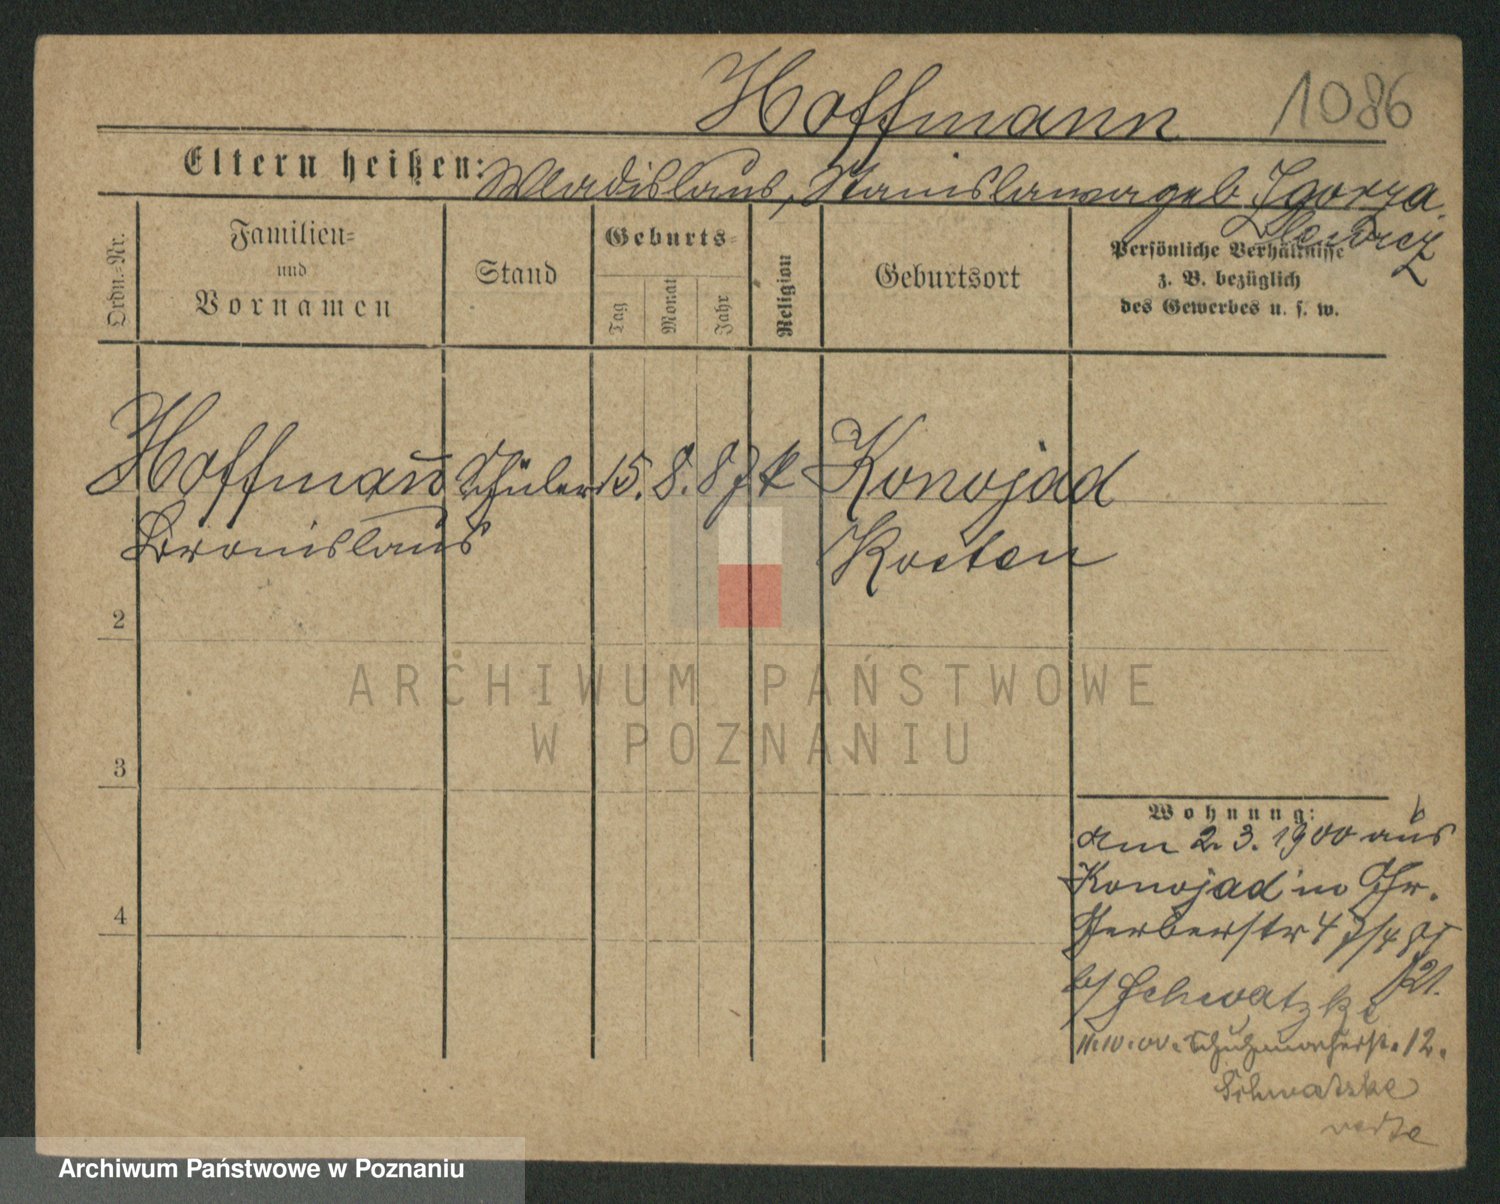 Hoffmann 1086
Eltern heißen: Wladislaus, Stanislawa geb. Zgorza
lewicz
Ordn.=Nr.
Familien=
und
Vornamen
Stand
Geburts=
Tag
Monat
Jahr
Religion
Geburtsort
Persönliche Verhältnisse
z. B. bezüglich
des Gewerbes u. s. w.
Hoffmann Schüler 15. 8. 87 k Konojad
Bronislaus Kosten
2
3
4
Wohnung:
am 2. 3. 1900 aus
Konojad in Gr.
Gerberstr 47
b/ Schwatzke 21.
Schuhmacherstr. 12.
Schwatzke
verte
ARCHIWUM PAŃSTWOWE
W POZNANIU
Archiwum Państwowe w Poznaniu